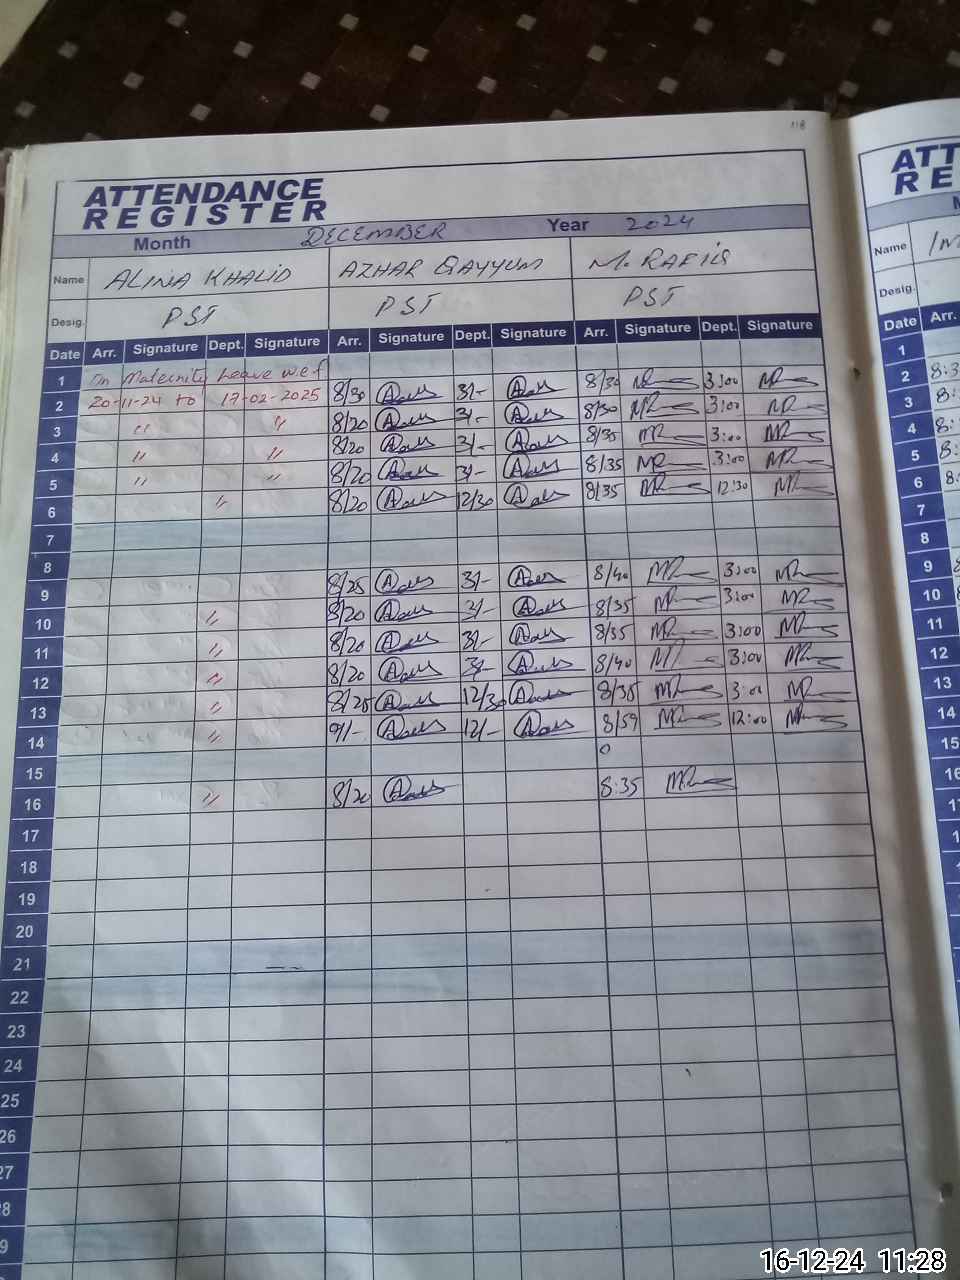 118
ATTENDANCE
REGISTER
Month DECEMBER Year 2024
Name ALINA KHALID AZHAR QAYYUM M. RAFIQ
Desig. PST PST PST
Date Arr. Signature Dept. Signature Arr. Signature Dept. Signature Arr. Signature Dept. Signature
1 On Maternity Leave w.e.f
2 20-11-24 to 17-02-2025 8/30 3/- 8/30 3:00
3 " " 8/20 3/- 8/30 3:00
4 " " 8/20 3/- 8/35 3:00
5 " " 8/20 3/- 8/35 3:00
6 " 8/20 12/30 8/35 12:30
7
8
9 8/25 3/- 8/40 3:00
10 " 8/20 3/- 8/35 3:00
11 " 8/20 3/- 8/35 3:00
12 " 8/20 3/- 8/40 3:00
13 " 8/25 12/30 8/35 3:00
14 " 9/- 12/- 8/59 12:00
15
16 " 8/20 8:35
17
18
19
20
21
22
23
24
25
26
27
28
29
ATT
RE
Name
Desig.
Date Arr.
1
2 8:3
3 8:
4 8:
5 8:
6 8:
7
8
9
10
11
12
13
14
15
16
16-12-24 11:28